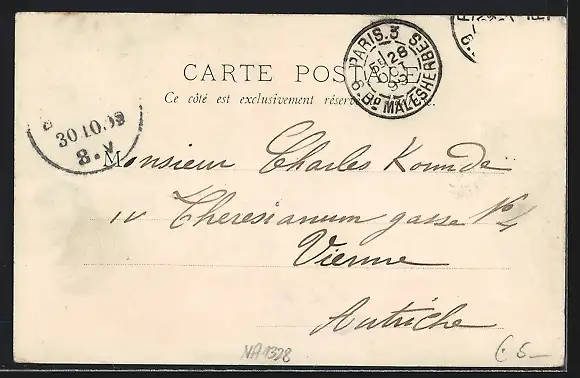 CARTE POSTALE
Ce côté est exclusivement réservé
PARIS. 3
28
6. Bd MALESHERBES
30.10.09
8.V
Monsieur Charles
IV Theresianum gasse No 4
Vienne
Autriche
VA1328
€ 6-